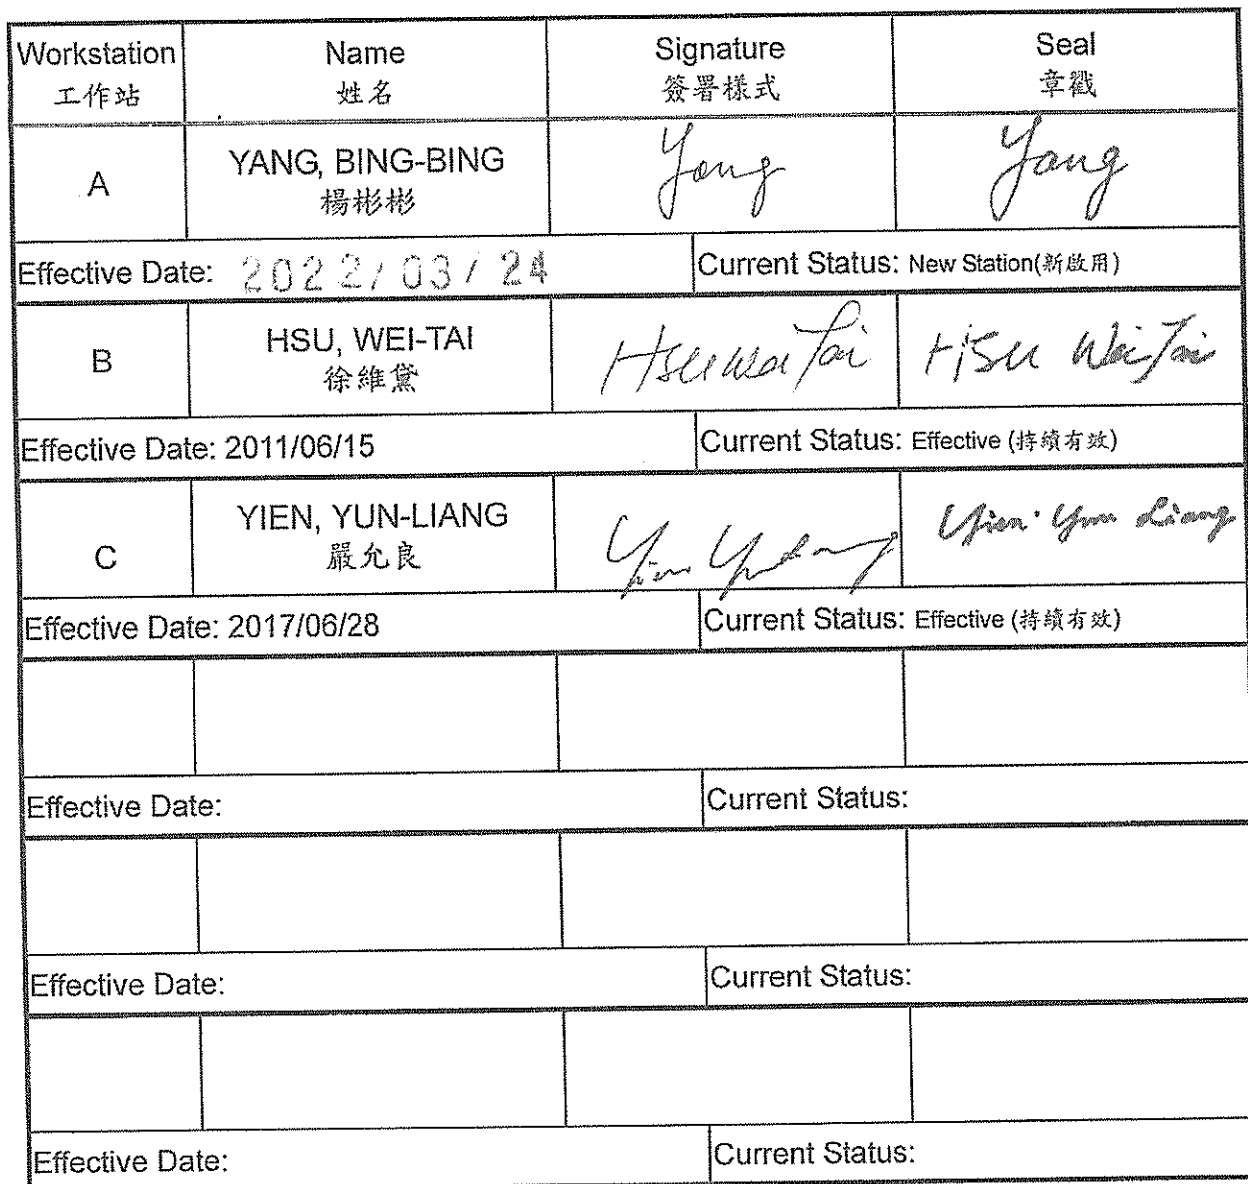 Workstation
工作站
Name
姓名
Signature
簽署樣式
Seal
章戳
A
YANG, BING-BING
楊彬彬
Yang
Yang
Effective Date: 2022/03/24
Current Status: New Station(新啟用)
B
HSU, WEI-TAI
徐維黛
Hsu Wei Tai
HSU Wei Tai
Effective Date: 2011/06/15
Current Status: Effective (持續有效)
C
YIEN, YUN-LIANG
嚴允良
Yien Yun Liang
Effective Date: 2017/06/28
Current Status: Effective (持續有效)
Effective Date:
Current Status:
Effective Date:
Current Status:
Effective Date:
Current Status: